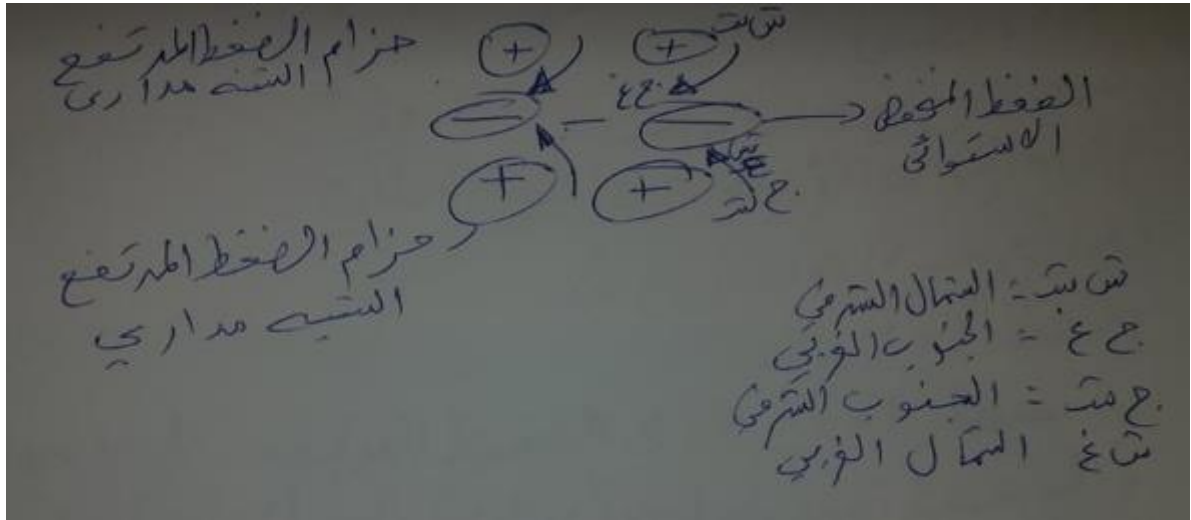 حزام الضغط المرتفع
الشبه مداري
+
+
ش ش
ج غ
-
-
-
الضغط المنخفض
الاستوائي
ش غ
+
+
ج ش
حزام الضغط المرتفع
الشبه مداري
ش ش = الشمال الشرقي
ج غ = الجنوب الغربي
ج ش = الجنوب الشرقي
ش غ الشمال الغربي